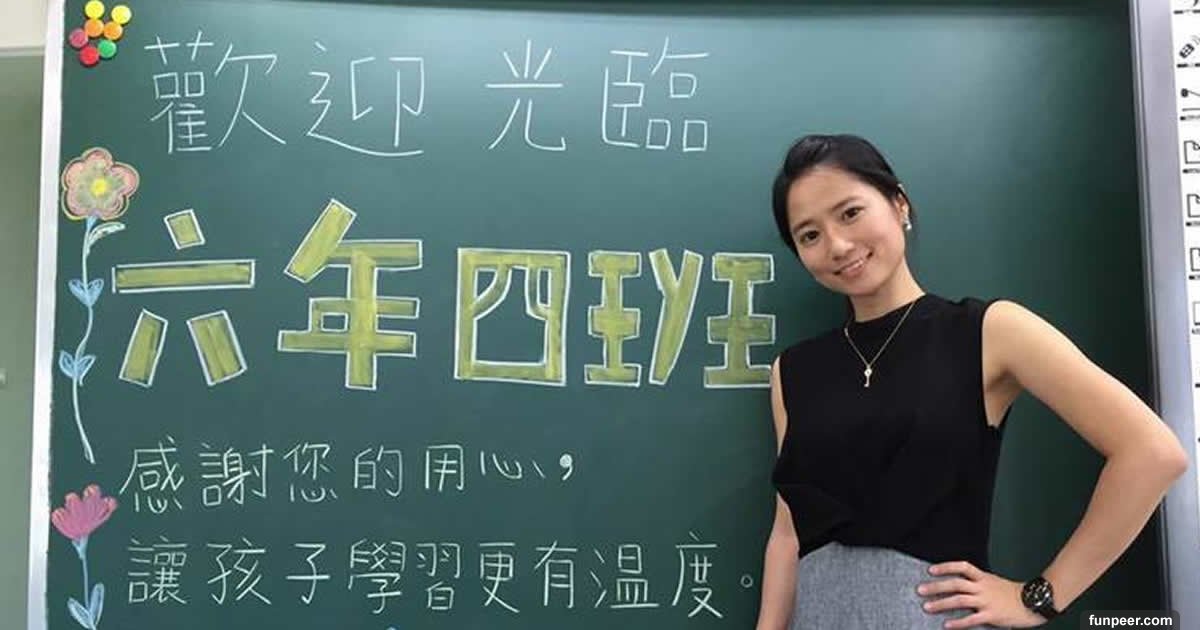 歡迎光臨
六年四班
感謝您的用心，
讓孩子學習更有溫度。
funpeer.com